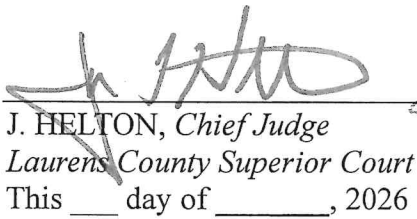 J. HELTON, Chief Judge
Laurens County Superior Court
This ___ day of ________, 2026